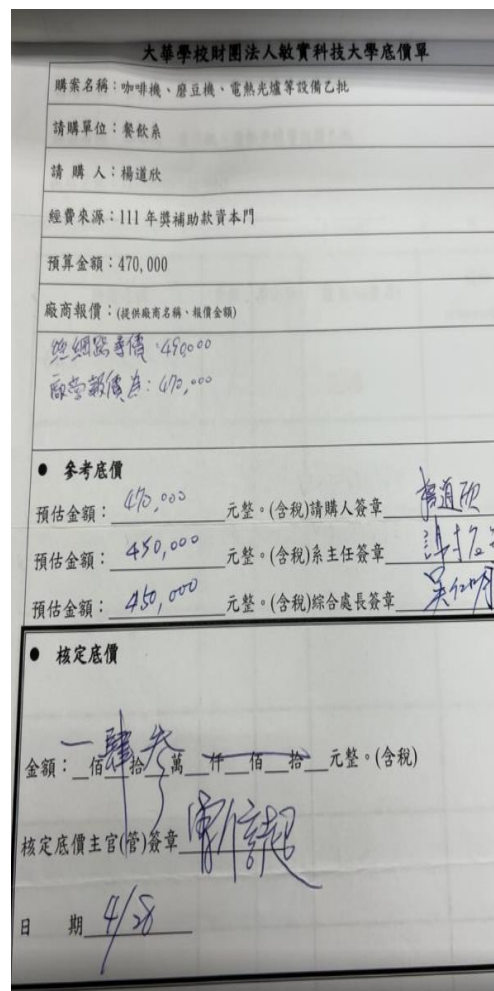 大華學校財團法人敏實科技大學底價單
購案名稱：咖啡機、磨豆機、電熱光爐等設備乙批
請購單位：餐飲系
請 購 人：楊道欣
經費來源：111 年獎補助款資本門
預算金額：470,000
廠商報價：(提供廠商名稱、報價金額)
經網路尋價：490000
廠商報價為：470,000
● 參考底價
預估金額：470,000元整。(含稅)請購人簽章 楊道欣
預估金額：450,000元整。(含稅)系主任簽章
預估金額：450,000元整。(含稅)綜合處長簽章
● 核定底價
金額：一佰肆拾參萬__仟__佰__拾__元整。(含稅)
核定底價主官(管)簽章
日 期 4/28